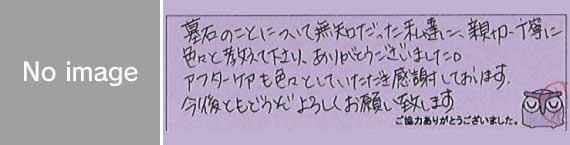 No image
墓石のことについて無知だった私達に、親切、丁寧に
色々と教えて下さり、ありがとうございました。
アフターケアも色々としていただき感謝しております。
今後ともどうぞよろしくお願い致します
ご協力ありがとうございました。